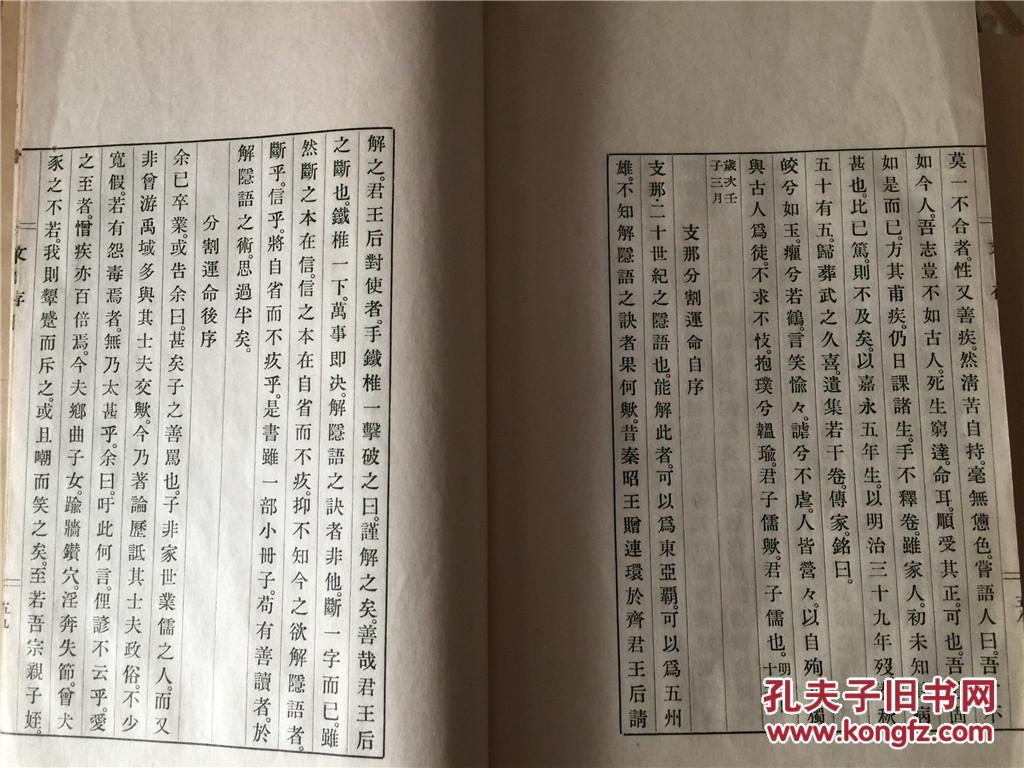 莫一不合者。性又善疾。然清苦自持。毫無憊色。嘗語人曰。吾 不
如今人。吾志豈不如古人。死生窮達。命耳。順受其正。可也。吾 固
如是而已。方其甫疾。仍日課諸生。手不釋卷。雖家人。初未知 病
甚也。比已篤。則不及矣。以嘉永五年生。以明治三十九年歿。 秋
五十有五。歸葬武之久喜。遺集若干卷。傳家。銘曰。
皎兮如玉。癯兮若鶴。言笑愉々。謔兮不虐。人皆營々。以自殉 獨
與古人爲徒。不求不忮。抱璞兮韞瑜。君子儒歟。君子儒也。明 十
歲次壬子三月
支那分割運命自序
支那・二十世紀之隱語也。能解此者。可以爲東亞覇。可以爲五州
雄。不知解隱語之訣者果何歟。昔秦昭王贈連環於齊君王后請
解之。君王后對使者。手鐵椎一擊破之曰。謹解之矣。善哉君王后
之斷也。鐵椎一下。萬事即决。解隱語之訣者非他。斷一字而已。雖
然斷之本在信。信之本在自省而不疚。抑不知今之欲解隱語者。
斷乎。信乎。將自省而不疚乎。是書雖一部小冊子。苟有善讀者。於
解隱語之術。思過半矣。
分割運命後序
余已卒業。或告余曰。甚矣子之善罵也。子非家世業儒之人。而又
非曾游禹域多與其士夫交歟。今乃著論歷詆其士夫政俗。不少
寬假。若有怨毒焉者。無乃太甚乎。余曰。吁此何言。俚諺不云乎。愛
之至者。憎疾亦百倍焉。今夫鄉曲子女。踰牆鑽穴。淫奔失節。曾犬
豕之不若。我則顰蹙而斥之。或且嘲而笑之矣。至若吾宗親子姪。
五九
孔夫子旧书网
www.kongfz.com